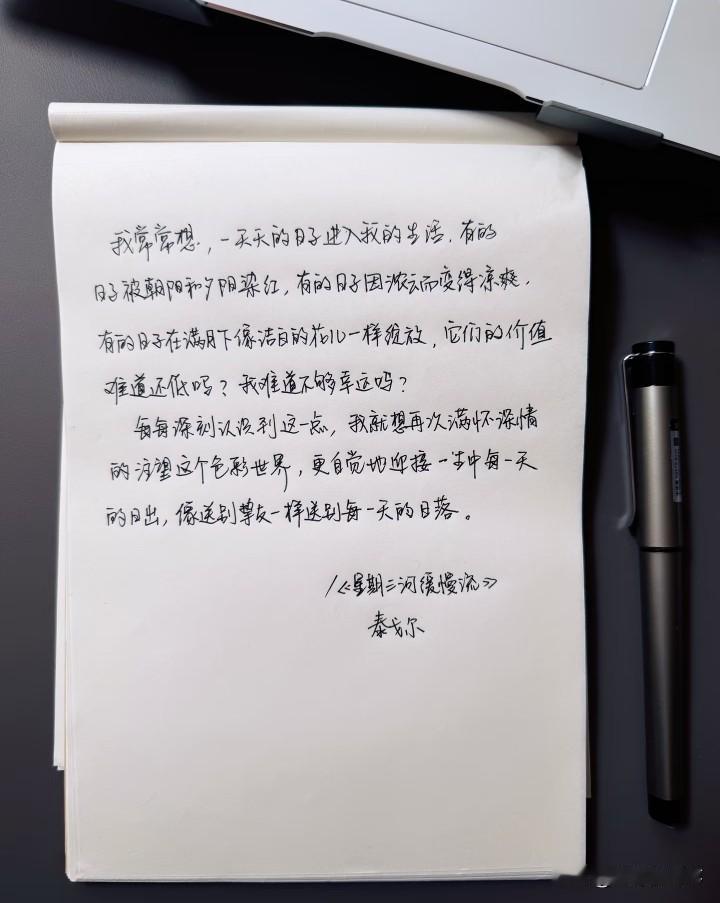 我常常想，一天天的日子进入我的生活，有的
日子被朝阳和夕阳染红，有的日子因浓云而变得凉爽，
有的日子在满月下像洁白的花儿一样绽放，它们的价值
难道还低吗？我难道不够幸运吗？
每每深刻认识到这一点，我就想再次满怀深情
的注望这个色彩世界，更自觉地迎接一生中每一天
的日出，像送别挚友一样送别每一天的日落。
/《星期三河缓慢流》
泰戈尔